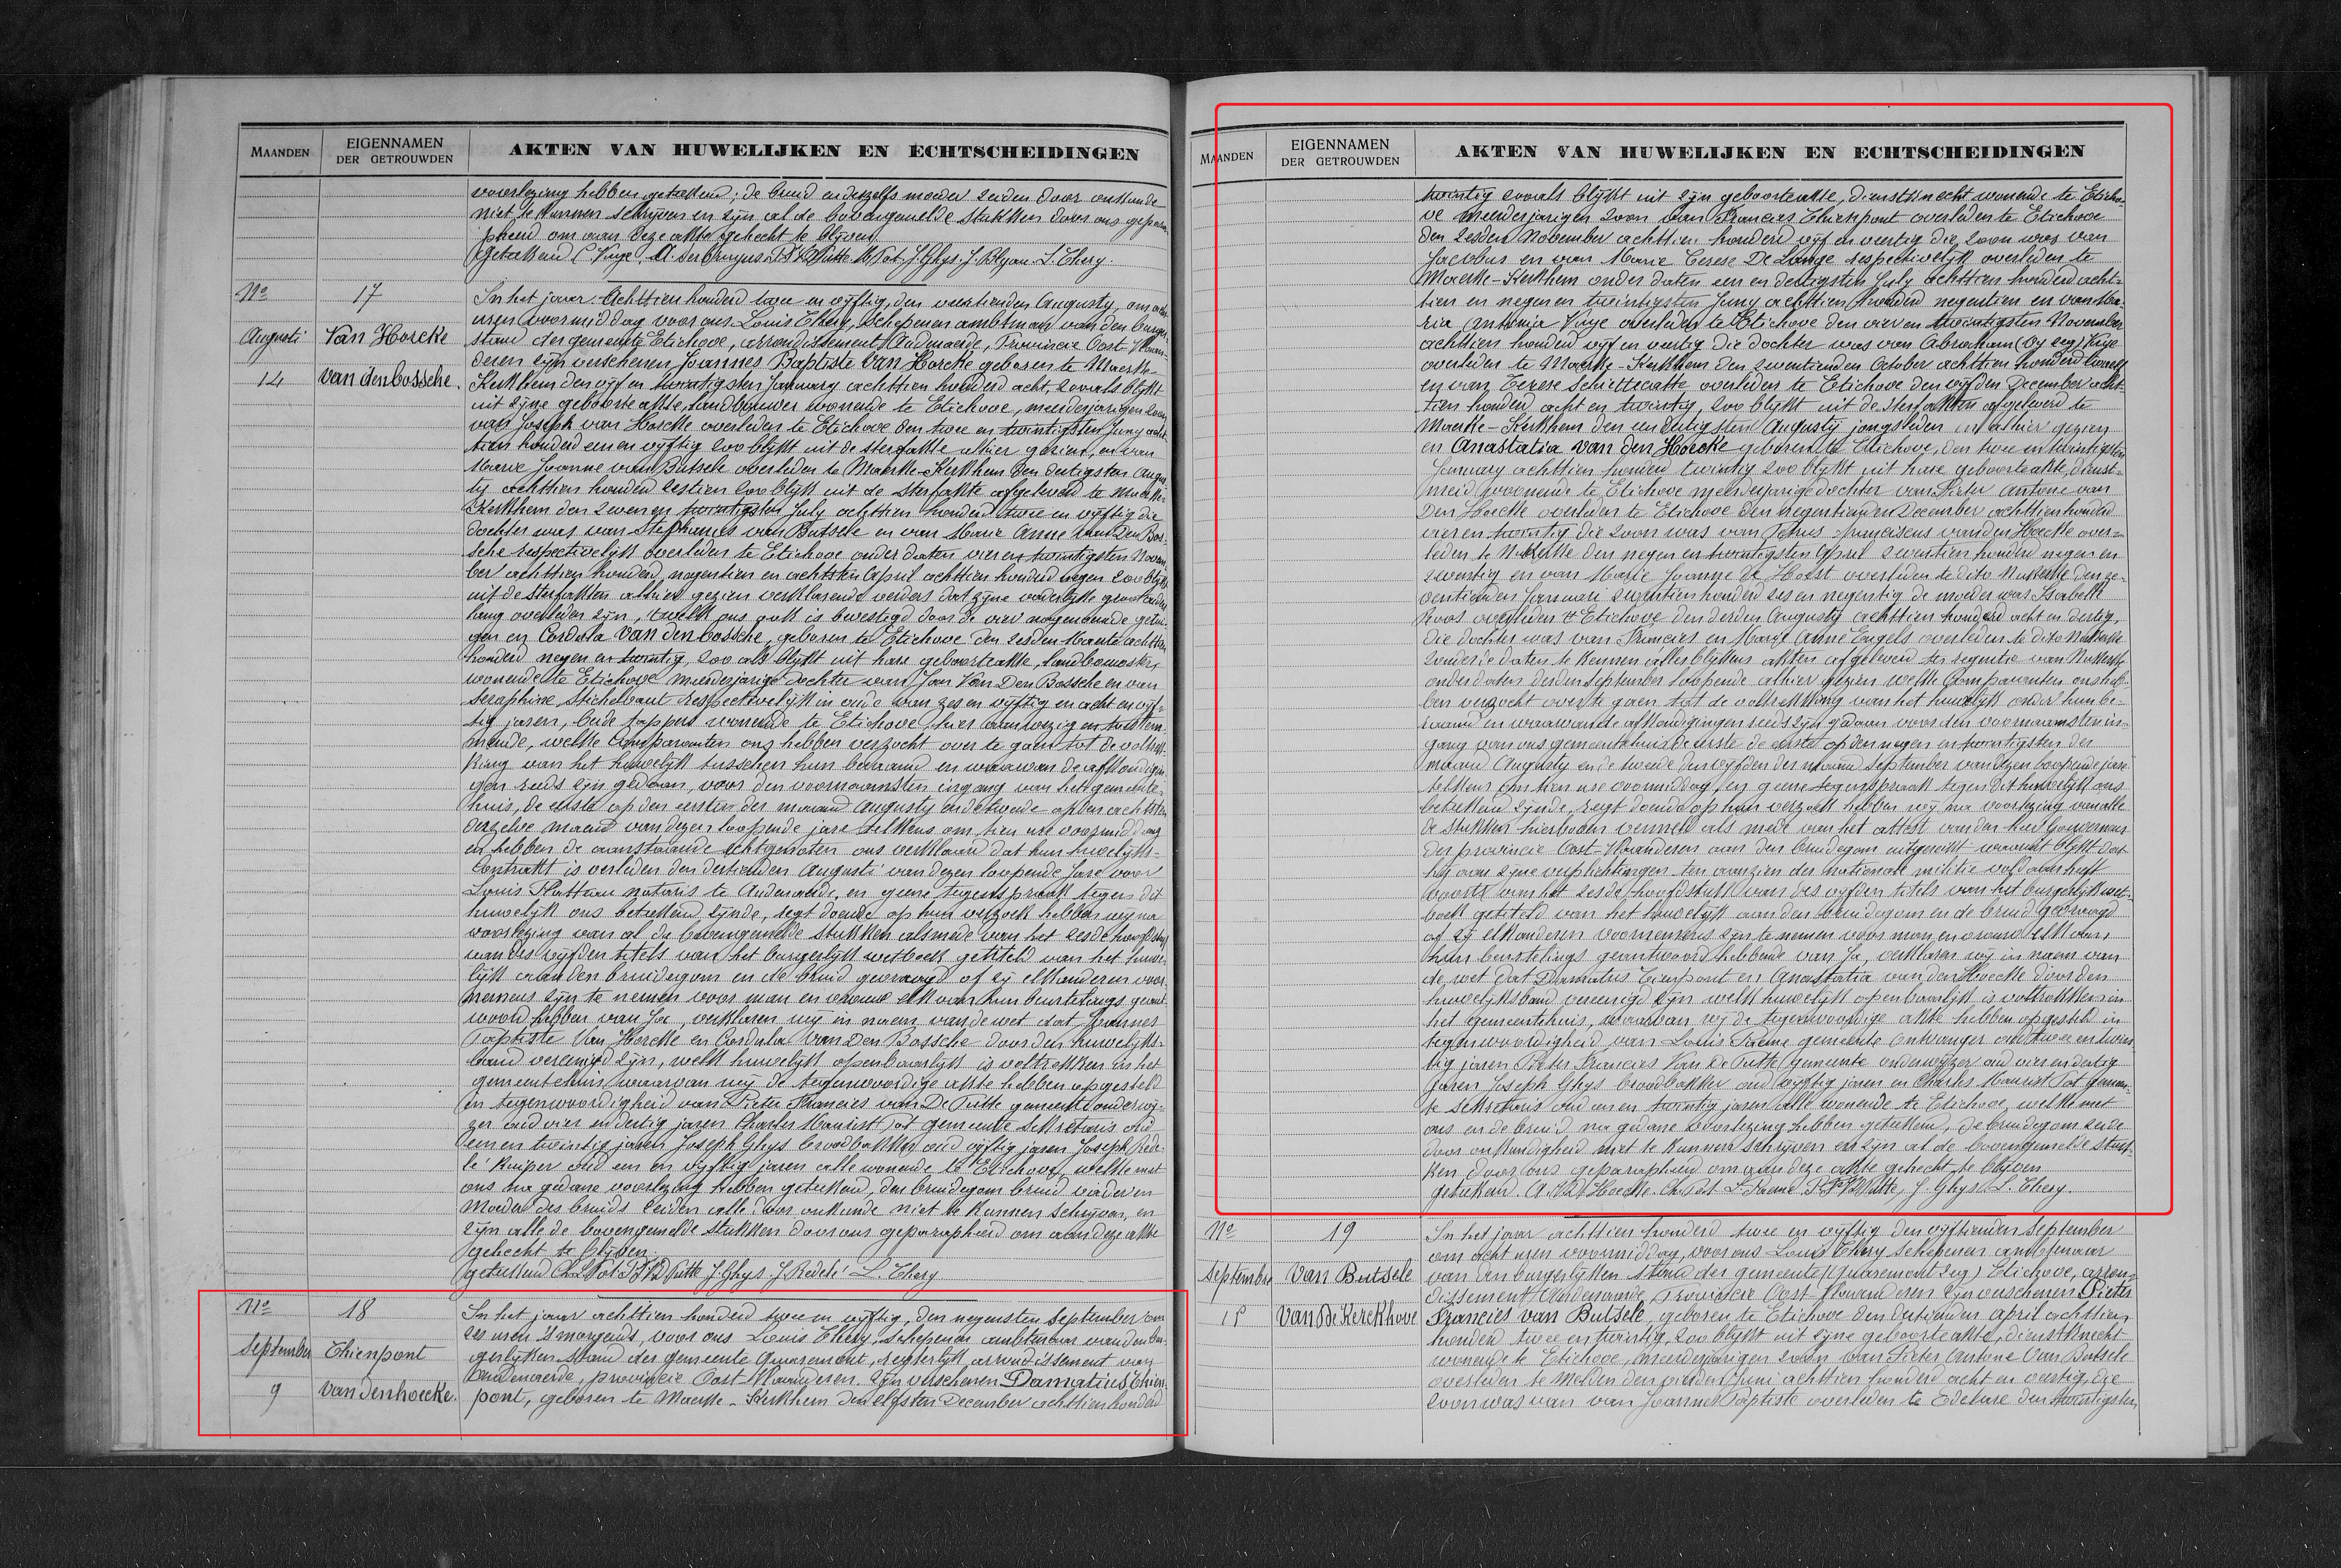 MAANDEN
EIGENNAMEN
DER GETROUWDEN
AKTEN VAN HUWELIJKEN EN ECHTSCHEIDINGEN
voorlezing hebben geteekend; de bruid en derzelfs moeder zeiden door onkunde
niet te kunnen schrijven en zijn al de bovengemelde stukken door ons gepara-
pheerd om aan deze akte gehecht te blijven
Geteekend C. Vuye, A. J. Ghys. J. L. Thery.
No 17
Augusti Van Hoecke
14 Van den bossche.
In het jaar Achttien honderd twee en vyftig, den veertienden Augusty, om acht
uren voormiddag voor ons Louis Thery, Schepenen ambtman van den burger-
stand der gemeente Etichove, arrondissement Audenaerde, Provincie Oost Vlaan-
deren zijn verschenen Joannes Baptiste Van Hoecke geboren te Maerke-
Kerkhem den vijf en twintigsten January achttien honderd acht, zooals blykt
uit zijne geboorte akte, landbouwer wonende te Etichove, meerderjarigen zoon
van Joseph van Hoecke overleden te Etichove den twee en twintigsten Juny acht-
tien honderd een en vyftig zoo blykt uit de sterfakte alhier gezien, en van
Marie Joanne van Butsele overleden te Maerke-Kerkhem den dertigsten Augus-
ty achttien honderd zestien zoo blykt uit de sterfakte afgeleverd te Maerke-
Kerkhem den zeven en twintigsten July achttien honderd twee en vyftig die
dochter was van Stephanus van Butsele en van Marie Anne van Den Bos-
sche respectivelijk overleden te Etichove onder daten vier en twintigsten Novem-
ber achttien honderd negentien en achtsten April achttien honderd negen zoo blykt
uit de sterfakten alhier gezien verklarende verders dat zijne vaderlyke grootouders
lang overleden zijn, 't welk ons ook is bevestigd door de vier nagenoemde getui-
gen en Cordula Van den bossche, geboren te Etichove den zesden Maerte achttien
honderd negen en twintig, zoo als blykt uit hare geboorteakte, landbouwster
wonende te Etichove meerderjarige dochter van Jan Van Den Bossche en van
Seraphine Stichelbaut respectivelijk in oude van zes en vyftig en acht en vyf-
tig jaren, beide tappers wonende te Etichove, hier aanwezig en toestem-
mende, welke Comparanten ons hebben verzocht over te gaan tot de voltrek-
king van het huwelijk tusschen hun beraamd en waarvan de afkondigin-
gen reeds zijn gedaan, voor den voornaamsten ingang van het gemeente-
huis, de eerste op den eersten der maand Augusty en de tweede op den achtsten
derzelve maand van dezen loopende jare telkens om tien ure voormiddag
en hebben de aanstaande echtgenoten ons verklaard dat hun huwelijks-
Contrakt is verleden den dertienden Augusti van dezen loopende jare voor
Louis Platteau notaris te Audenaerde, en geene tegenspraak tegen dit
huwelijk ons beteekend zijnde, regt doende op hun verzoek hebben wij na
voorlezing van al de bovengemelde stukken alsmede van het zesde hoofdstuk
van des vijfden titels van het burgerlijk wetboek getiteld van het huwe-
lijk aan den bruidegom en de bruid gevraagd of zij elkanderen voor-
nemens zijn te nemen voor man en vrouw elk van hun beurtelings geant-
woord hebben van Ja, verklaren wij in naem van de wet dat Joannes
Baptiste Van Hoecke en Cordula Van Den Bossche door den huwelijks-
band vereenigd zijn, welk huwelijk openbaarlijk is voltrokken in het
gemeentehuis waarvan wij de tegenwoordige akte hebben opgesteld
in tegenwoordigheid van Pieter Francies van De Putte gemeente onderwij-
zer oud vier en dertig jaren Charles Pot gemeente sekretaris oud
een en twintig jaren Joseph Ghys broodbakker oud vyftig jaren Joseph Rede-
lé kuiper oud een en vyftig jaren alle wonende te Etichove, welke met
ons na gedane voorlezing hebben geteekend, den bruidegom bruid vader en
moeder des bruids zeiden alle door onkunde niet te kunnen schrijven, en
zijn alle de bovengemelde stukken door ons geparapheerd om aan deze akte
gehecht te blijven.
geteekend Ch. Pot P.F. VD Putte J. Ghys J. Redelé L. Thery
No 18
September Thienpont
9 Van den hoecke.
In het jaar achttien honderd twee en vyftig, den negensten September om
zes uren 's morgends, voor ons Louis Thery, Schepenen ambtenaar van den bur-
gerlyken stand der gemeente Quaremont, regterlijk arrondissement van
Audenaerde, provincie Oost-Vlaanderen. Zijn verschenen Damatius Thien-
pont, geboren te Maerke-Kerkhem den elfsten December achttien honderd
MAANDEN
EIGENNAMEN
DER GETROUWDEN
AKTEN VAN HUWELIJKEN EN ECHTSCHEIDINGEN
twintig zooals blykt uit zijn geboorteakte, dienstknecht wonende te Eticho-
ve meerderjarigen zoon van Francies Thienpont overleden te Etichove
den zesden November achttien honderd vijf en veertig die zoon was van
Jacobus en van Marie Terese De Lange respectivelijk overleden te
Maerke-Kerkhem onder daten een en dertigsten July achttien honderd acht-
tien en negen en twintigsten Juny achttien honderd negentien en van Ma-
ria Antonia Vuye overleden te Etichove den vier en twintigsten November
achttien honderd vijf en veertig die dochter was van Abraham (by zeg) Vuye
overleden te Maerke-Kerkhem den zeventienden October achttien honderd twaelf
en van Terese Schiettecatte overleden te Etichove den vijfden December acht-
tien honderd acht en twintig, zoo blykt uit de sterfakten afgeleverd te
Maerke-Kerkhem den een dertigsten Augusty jongsleden en alhier gezien
en Anastatia Van den Hoecke geboren te Etichove, den twee en twintigsten
January achttien honderd twintig zoo blykt uit hare geboorteakte, dienst-
meid woonende te Etichove meerderjarige dochter van Pieter Antone van
Den Hoecke overleden te Etichove den negentienden December achttien honderd
vier en twintig die zoon was van Petrus Franciscus van den Hoecke over-
leden te Nukerke den negen en twintigsten April zeventien honderd negen en
zeventig en van Marie Joanne De Hoest overleden te dito Nukerke den ze-
ventienden Januari zeventien honderd zes en negentig de moeder was Isabelle
Roos overleden te Etichove den derden Augusty achttien honderd acht en dertig,
die dochter was van Francies en Marie Anne Engels overleden te dito Nukerke
zonder de daten te kennen alles blykens akten afgeleverd ter regentie van Nukerke
onder daten derden September loopende alhier gezien welke Comparanten ons heb-
ben verzocht over te gaen tot de voltrekking van het huwelijk onder hun be-
raamd en waarvan de afkondigingen reeds zijn gedaan voor den voornaamsten in-
gang van ons gemeentehuis de eerste de eerste op den negen en twintigsten der
maand Augusty en de tweede den vyfden der maand September van dezen loopende jare
telkens om tien ure voormiddag en geene tegenspraak tegen dit huwelijk ons
beteekend zijnde, regt doende op hun verzoek hebben wij na voorlezing van alle
de stukken hierboven vermeld als mede van het attest van den heer Gouverneur
der provincie Oost-Vlaanderen aan den bruidegom uitgereikt waeruit blykt dat
hij aan zijne verplichtingen ten aanzien der nationale militie voldaan heeft
voorts van het zesde hoofdstuk van des vyfden titels van het burgerlijk wet-
boek getiteld van het huwelijk aan den bruidegom en de bruid gevraagd
of zij elkanderen voornemens zijn te nemen voor man en vrouw elk van
hun beurtelings geantwoord hebbende van Ja, verklaren wij in naem van
de wet dat Damatius Tienpont en Anastatia van den Hoecke door den
huwelijksband vereenigd zijn welk huwelijk openbaarlijk is voltrokken in
het gemeentehuis, waarvan wij de tegenwoordige akte hebben opgesteld in
tegenwoordigheid van Louis gemeente ontvanger oud twee en twin-
tig jaren Pieter Francies Van De Putte gemeente onderwijzer oud vier en dertig
jaren Joseph Ghys broodbakker oud vyftig jaren en Charles Pot gemeen-
te sekretaris oud een en twintig jaren alle wonende te Etichove, welke met
ons en de bruid na gedane voorlezing hebben geteekend, de bruidegom zeide
door onkundigheid niet te kunnen schrijven en zijn al de bovengemelde stuk-
ken door ons geparapheerd om aan deze akte gehecht te blijven
geteekend. A. VD Hoecke. Ch. Pot. L. P.F. VD Putte, J. Ghys. L. Thery.
No 19
Septembre Van Butsele
15 Van De Kerckhove
In het jaar achttien honderd twee en vyftig den vyftienden September
om acht uren voormiddag, voor ons Louis Thery Schepenen ambtenaar
van den burgerlijken stand der gemeente (Quaremont zeg) Etichove, arron-
dissement Audenaerde, provincie Oost Vlaanderen zijn verschenen Pieter
Francies van Butsele, geboren te Etichove den dertienden april achttien
honderd twee en twintig, zoo blykt uit zijne geboorteakte, dienstknecht
wonende te Etichove, meerderjarigen zoon van Pieter Antone Van Butsele
overleden te Melden den vierden Juni achttien honderd acht en veertig, die
zoon was van van Joannes Baptiste overleden te Edelare den twintigsten